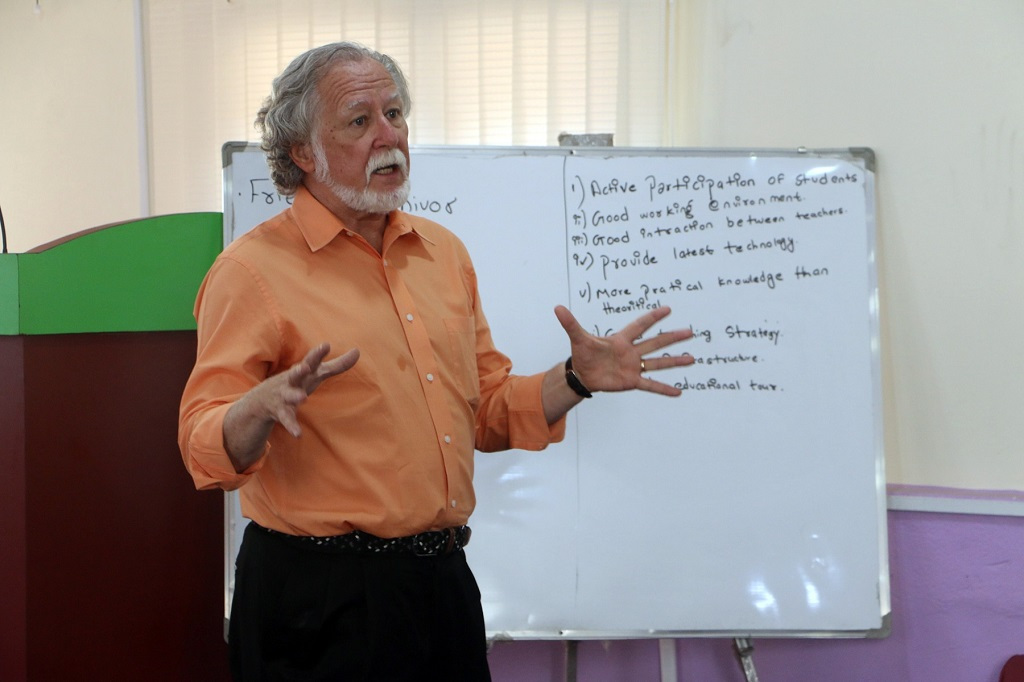 i) Active participation of students
ii) Good working environment.
iii) Good intraction between teachers.
iv) provide latest technology.
v) More pratical knowledge than
theoritical
Strategy.
educational tour.